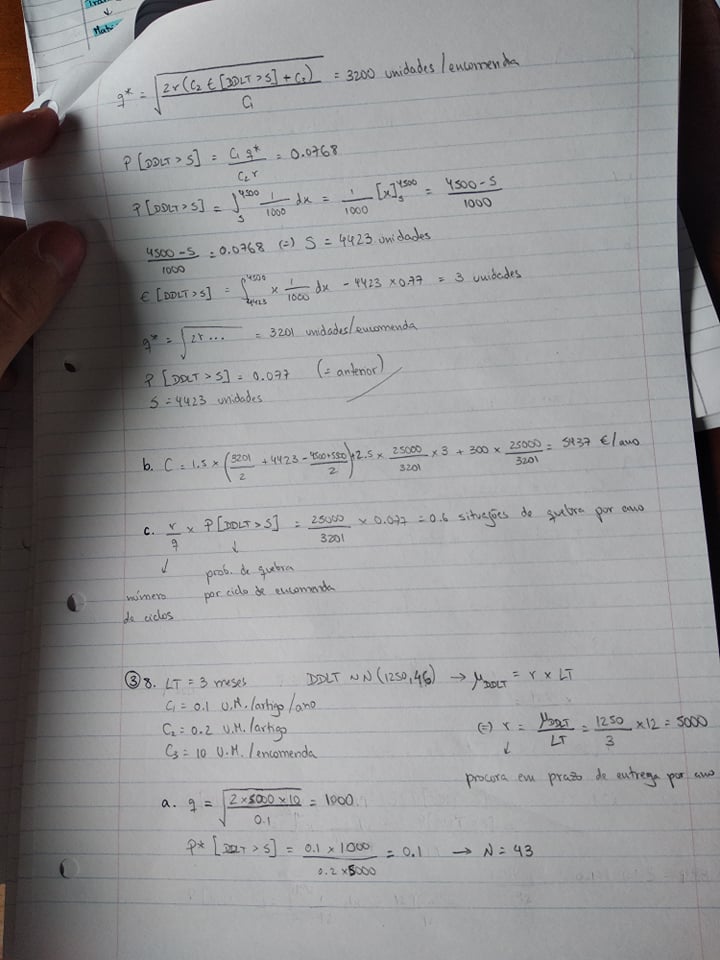 Mate
q* = √(2r(C₂ E[DDLT>S] + C₃) / C₁) = 3200 unidades/encomenda
P[DDLT>S] = C₁ q* / C₂ r = 0.0768
P[DDLT>S] = ∫_S^4500 1/1000 dx = 1/1000 [x]_S^4500 = 4500-S / 1000
4500-S / 1000 = 0.0768 (=) S = 4423 unidades
E[DDLT>S] = ∫_4423^4500 x 1/1000 dx - 4423 × 0.77 = 3 unidades
q* = √2r... = 3201 unidades/encomenda
P[DDLT>S] = 0.077 (= anterior)
S = 4423 unidades
b. C = 1.5 × (3201/2 + 4423 - 4500+550/2) + 2.5 × 25000/3201 × 3 + 300 × 25000/3201 = 5437 €/ano
c. r/q × P[DDLT>S] = 25000/3201 × 0.077 = 0.6 situações de quebra por ano
↓ ↓
prob. de quebra
número por ciclo de encomenda
de ciclos
③ 8. LT = 3 meses DDLT ~ N(1250, 46) → μ_DDLT = r × LT
C₁ = 0.1 U.M./artigo/ano
C₂ = 0.2 U.M./artigo (=) r = μ_DDLT / LT = 1250/3 × 12 = 5000
C₃ = 10 U.M./encomenda ↓
procura em prazo de entrega por ano
a. q = √(2×5000×10 / 0.1) = 1000
P* [DDLT>S] = 0.1 × 1000 / 0.2 × 5000 = 0.1 → N = 43